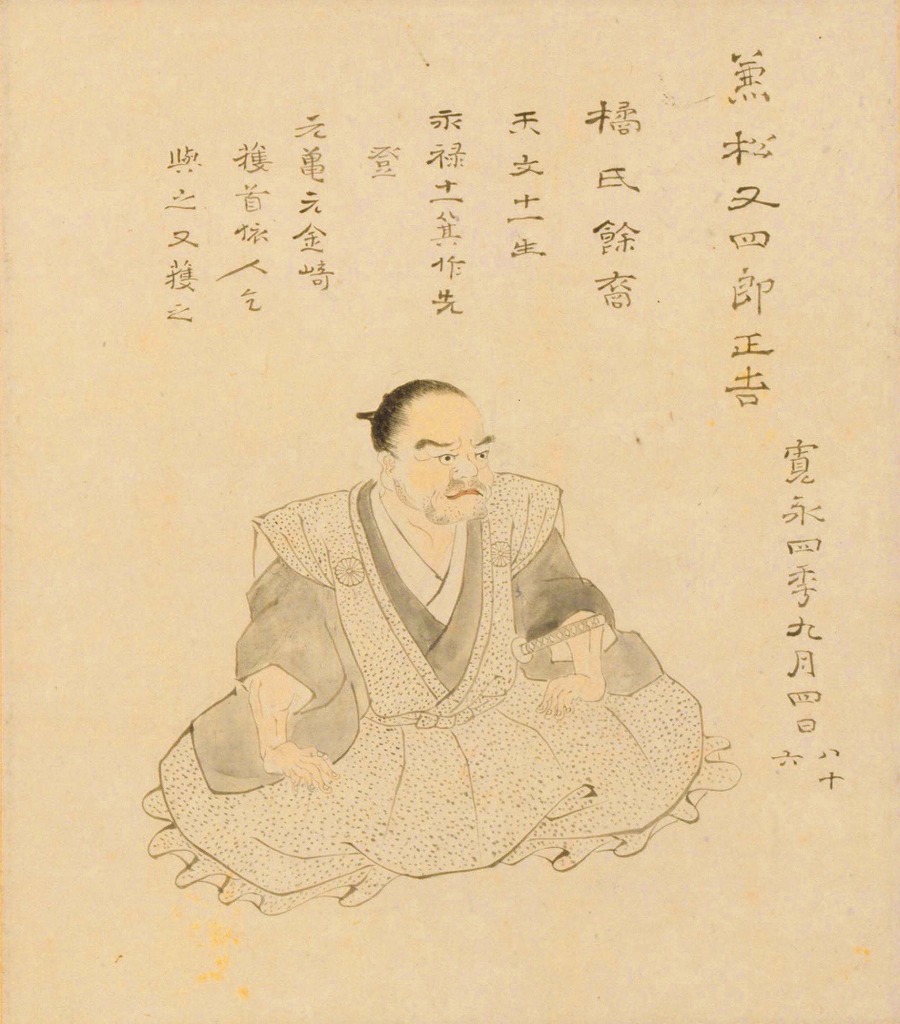 兼松又四郎正吉
寛永四季九月四日
八十
六
橘氏餘裔
天文十一生
永禄十一箕作先
登
元亀元金崎
獲首依人乞
與之又獲之